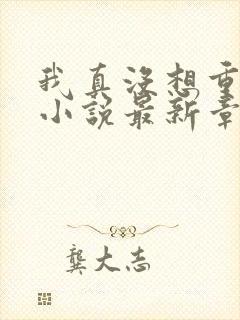 我真没想重
小说最新章
龚大志